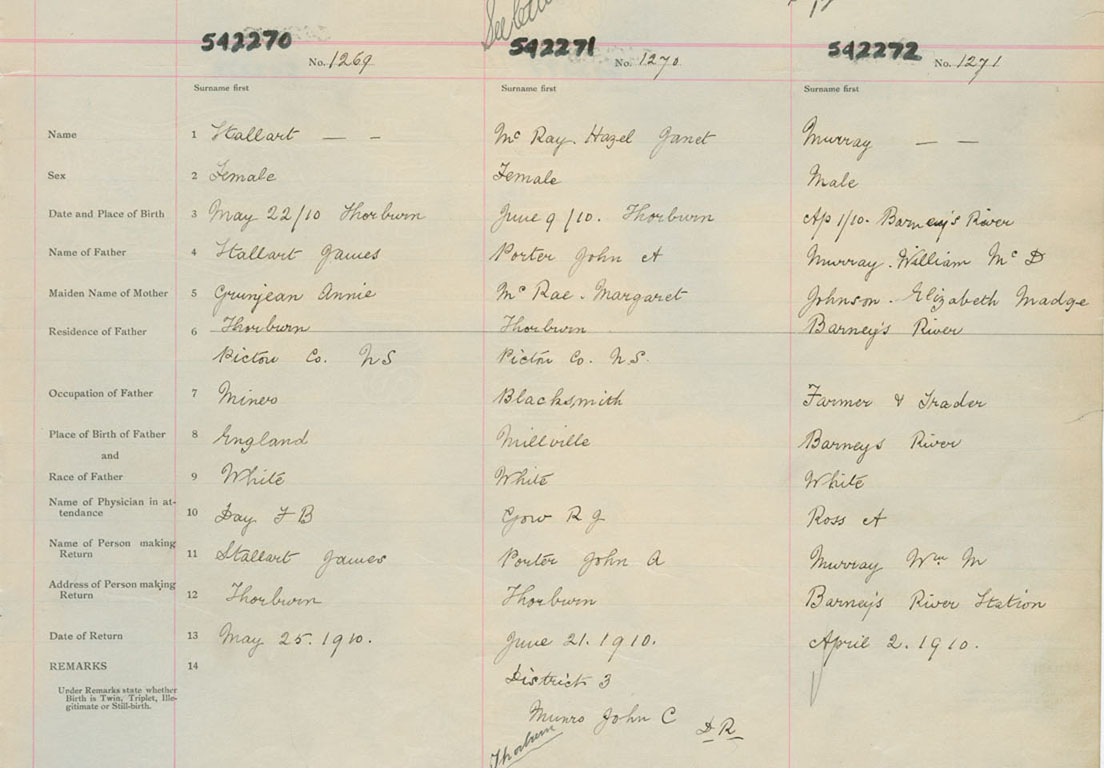 See
542270 542271 542272
No. 1269 No. 1270 No. 1271
Surname first Surname first Surname first
Name 1 Stallart — - Mc Ray. Hazel Janet Murray — —
Sex 2 Female Female Male
Date and Place of Birth 3 May 22/10 Thorburn June 9/10. Thorburn Ap 1/10. Barney's River
Name of Father 4 Stallart James Porter John A Murray. William Mc D
Maiden Name of Mother 5 Grunjean Annie Mc Rae. Margaret Johnson. Elizabeth Madge
Residence of Father 6 Thorburn Thorburn Barney's River
Pictou Co. NS Pictou Co. N.S.
Occupation of Father 7 Miner Blacksmith Farmer & Trader
Place of Birth of Father 8 England Millville Barneys River
and
Race of Father 9 White White White
Name of Physician in at-
tendance 10 Day F B Gow R J Ross A
Name of Person making
Return 11 Stallart James Porter John A Murray Wm M
Address of Person making
Return 12 Thorburn Thorburn Barney's River Station
Date of Return 13 May 25. 1910. June 21. 1910. April 2. 1910.
REMARKS 14
District 3
Under Remarks state whether
Birth is Twin, Triplet, Ille-
gitimate or Still-birth.
Munro John C D R
Thorburn